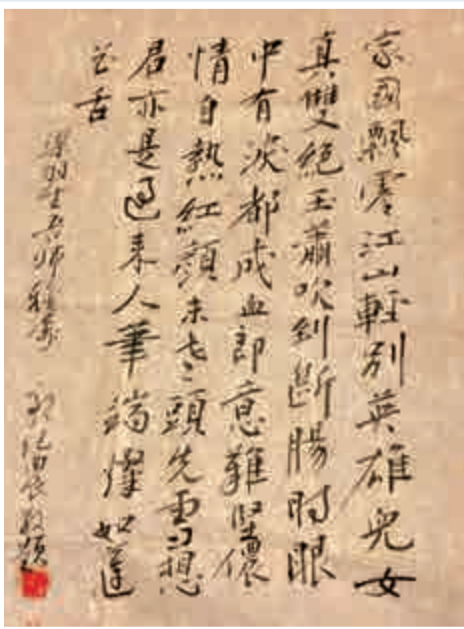 家國飄零江山輕別英雄兒女
真雙絕玉蕭吹到斷腸時眼
中有淚都成血郎意難堅儂
情自熱紅顏未老頭先雪想
君亦是過來人筆端燦如蓮
花舌
梁羽生吾師雅
敬題